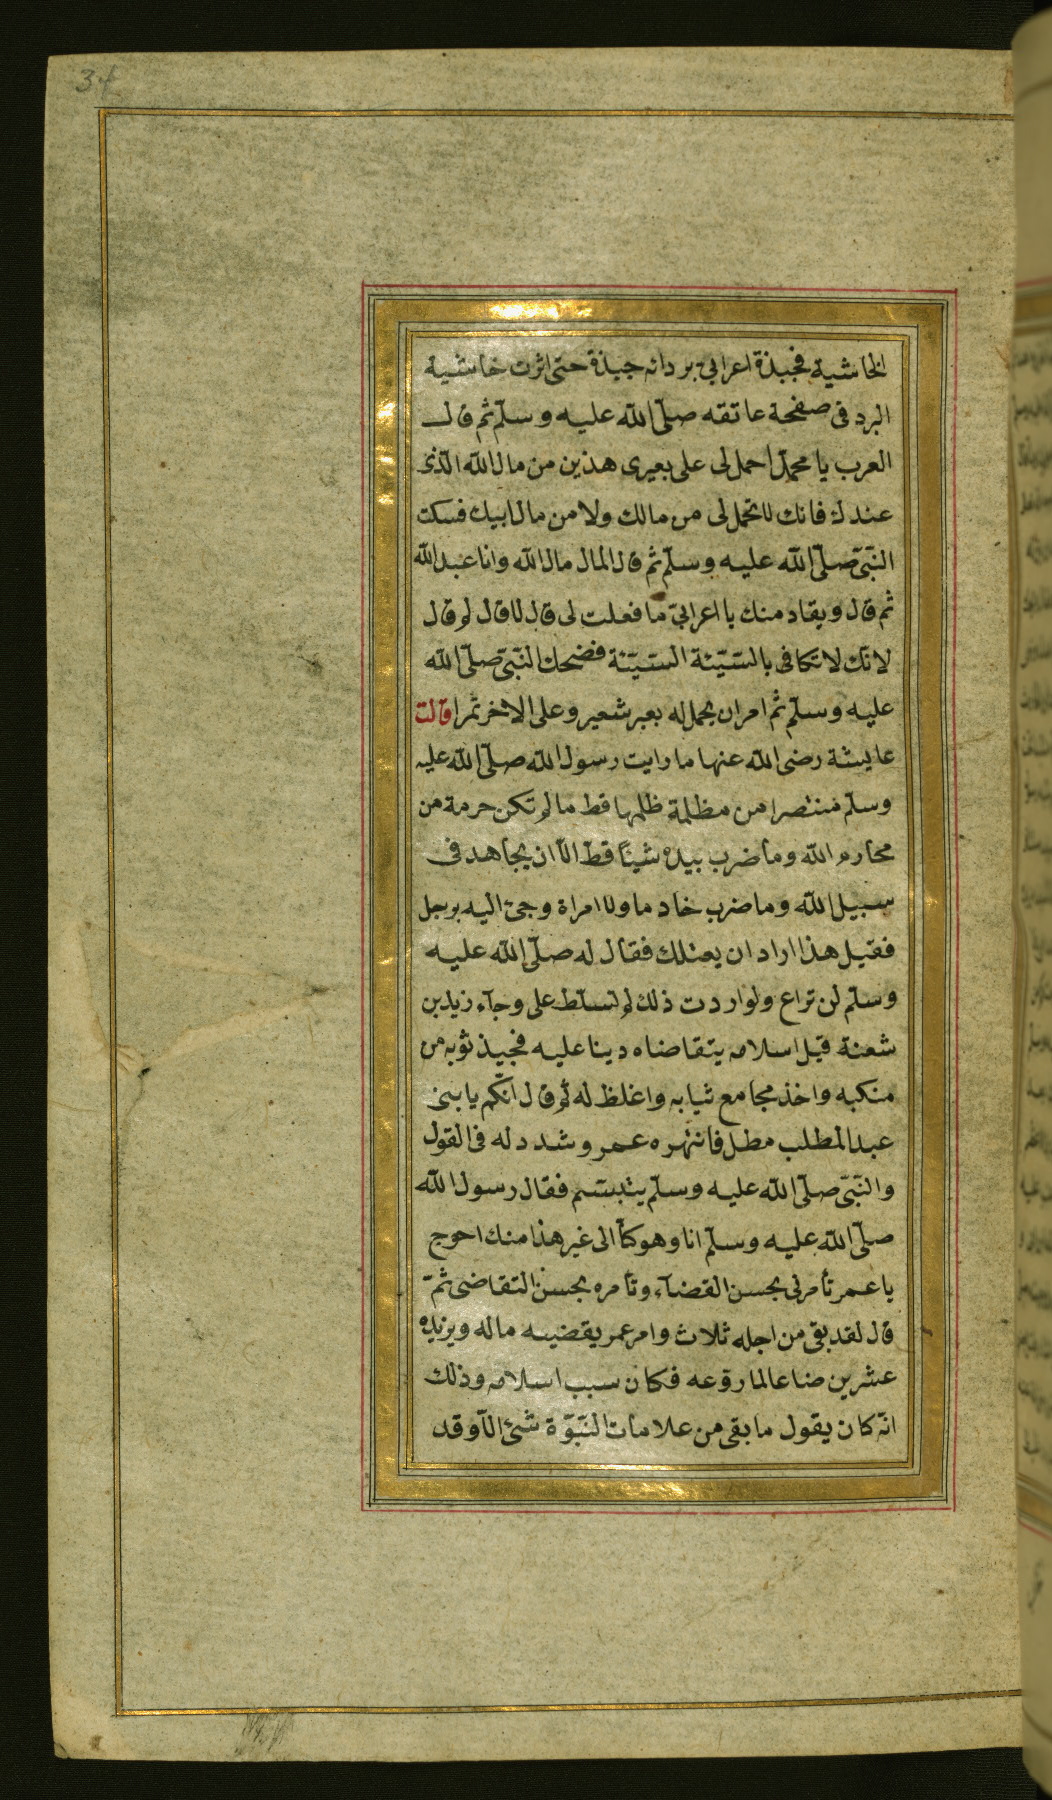 34
الخاشية فجبذة اعرابى بردائه جبذة حتى اثرت خاشية
البرد فى صفحة عاتقه صلّى الله عليه وسلّم ثم قال
العرب يا محمّد احمل لى على بعيرى هذين من مال الله الّذى
عندك فانك لا تحمل لى من مالك ولا من مال ابيك فسكت
النّبىّ صلّى الله عليه وسلّم ثم قال المال مال الله وانا عبد الله
ثم قال ويقاد منك يا اعرابىّ ما فعلت لى قال لا قال لم قال
لانّك لا تكافى بالسّيّئة السّيّئة فضحك النّبىّ صلّى الله
عليه وسلّم ثم امر ان يحمل له بعير شعير وعلى الاخر تمرا قالت
عايشة رضى الله عنها ما رايت رسول الله صلّى الله عليه
وسلّم منتصرا من مظلمة ظلمها قط ما لم تكن حرمة من
محارم الله وما ضرب بيده شيئا قطّ الّا ان يجاهد فى
سبيل الله وما ضرب خادما ولا امراة وجئ اليه برجل
فقيل هذا اراد ان يقتلك فقال له صلّى الله عليه
وسلّم لن تراع ولو اردت ذلك لم تسلّط على وجآء زيد بن
شعنة قبل اسلامه يتقاضاه دينا عليه فجبذ ثوبه من
منكبه واخذ مجامع ثيابه واغلظ له ثم قال انّكم يا بنى
عبد المطلب مطل فانتهره عمر وشدد له فى القول
والنّبىّ صلّى الله عليه وسلّم يتبسّم فقال رسول الله
صلّى الله عليه وسلّم انا وهو كنّا الى غير هذا منك احوج
يا عمر تأمرنى بحسن القضآء وتأمره بحسن التقاضى ثمّ
قال لقد بقى من اجله ثلاث وامر عمر يقضيه ماله ويزيده
عشرين صاعا لما روّعه فكان سبب اسلامه وذلك
انّه كان يقول ما بقى من علامات النّبوّة شئ الّا وقد